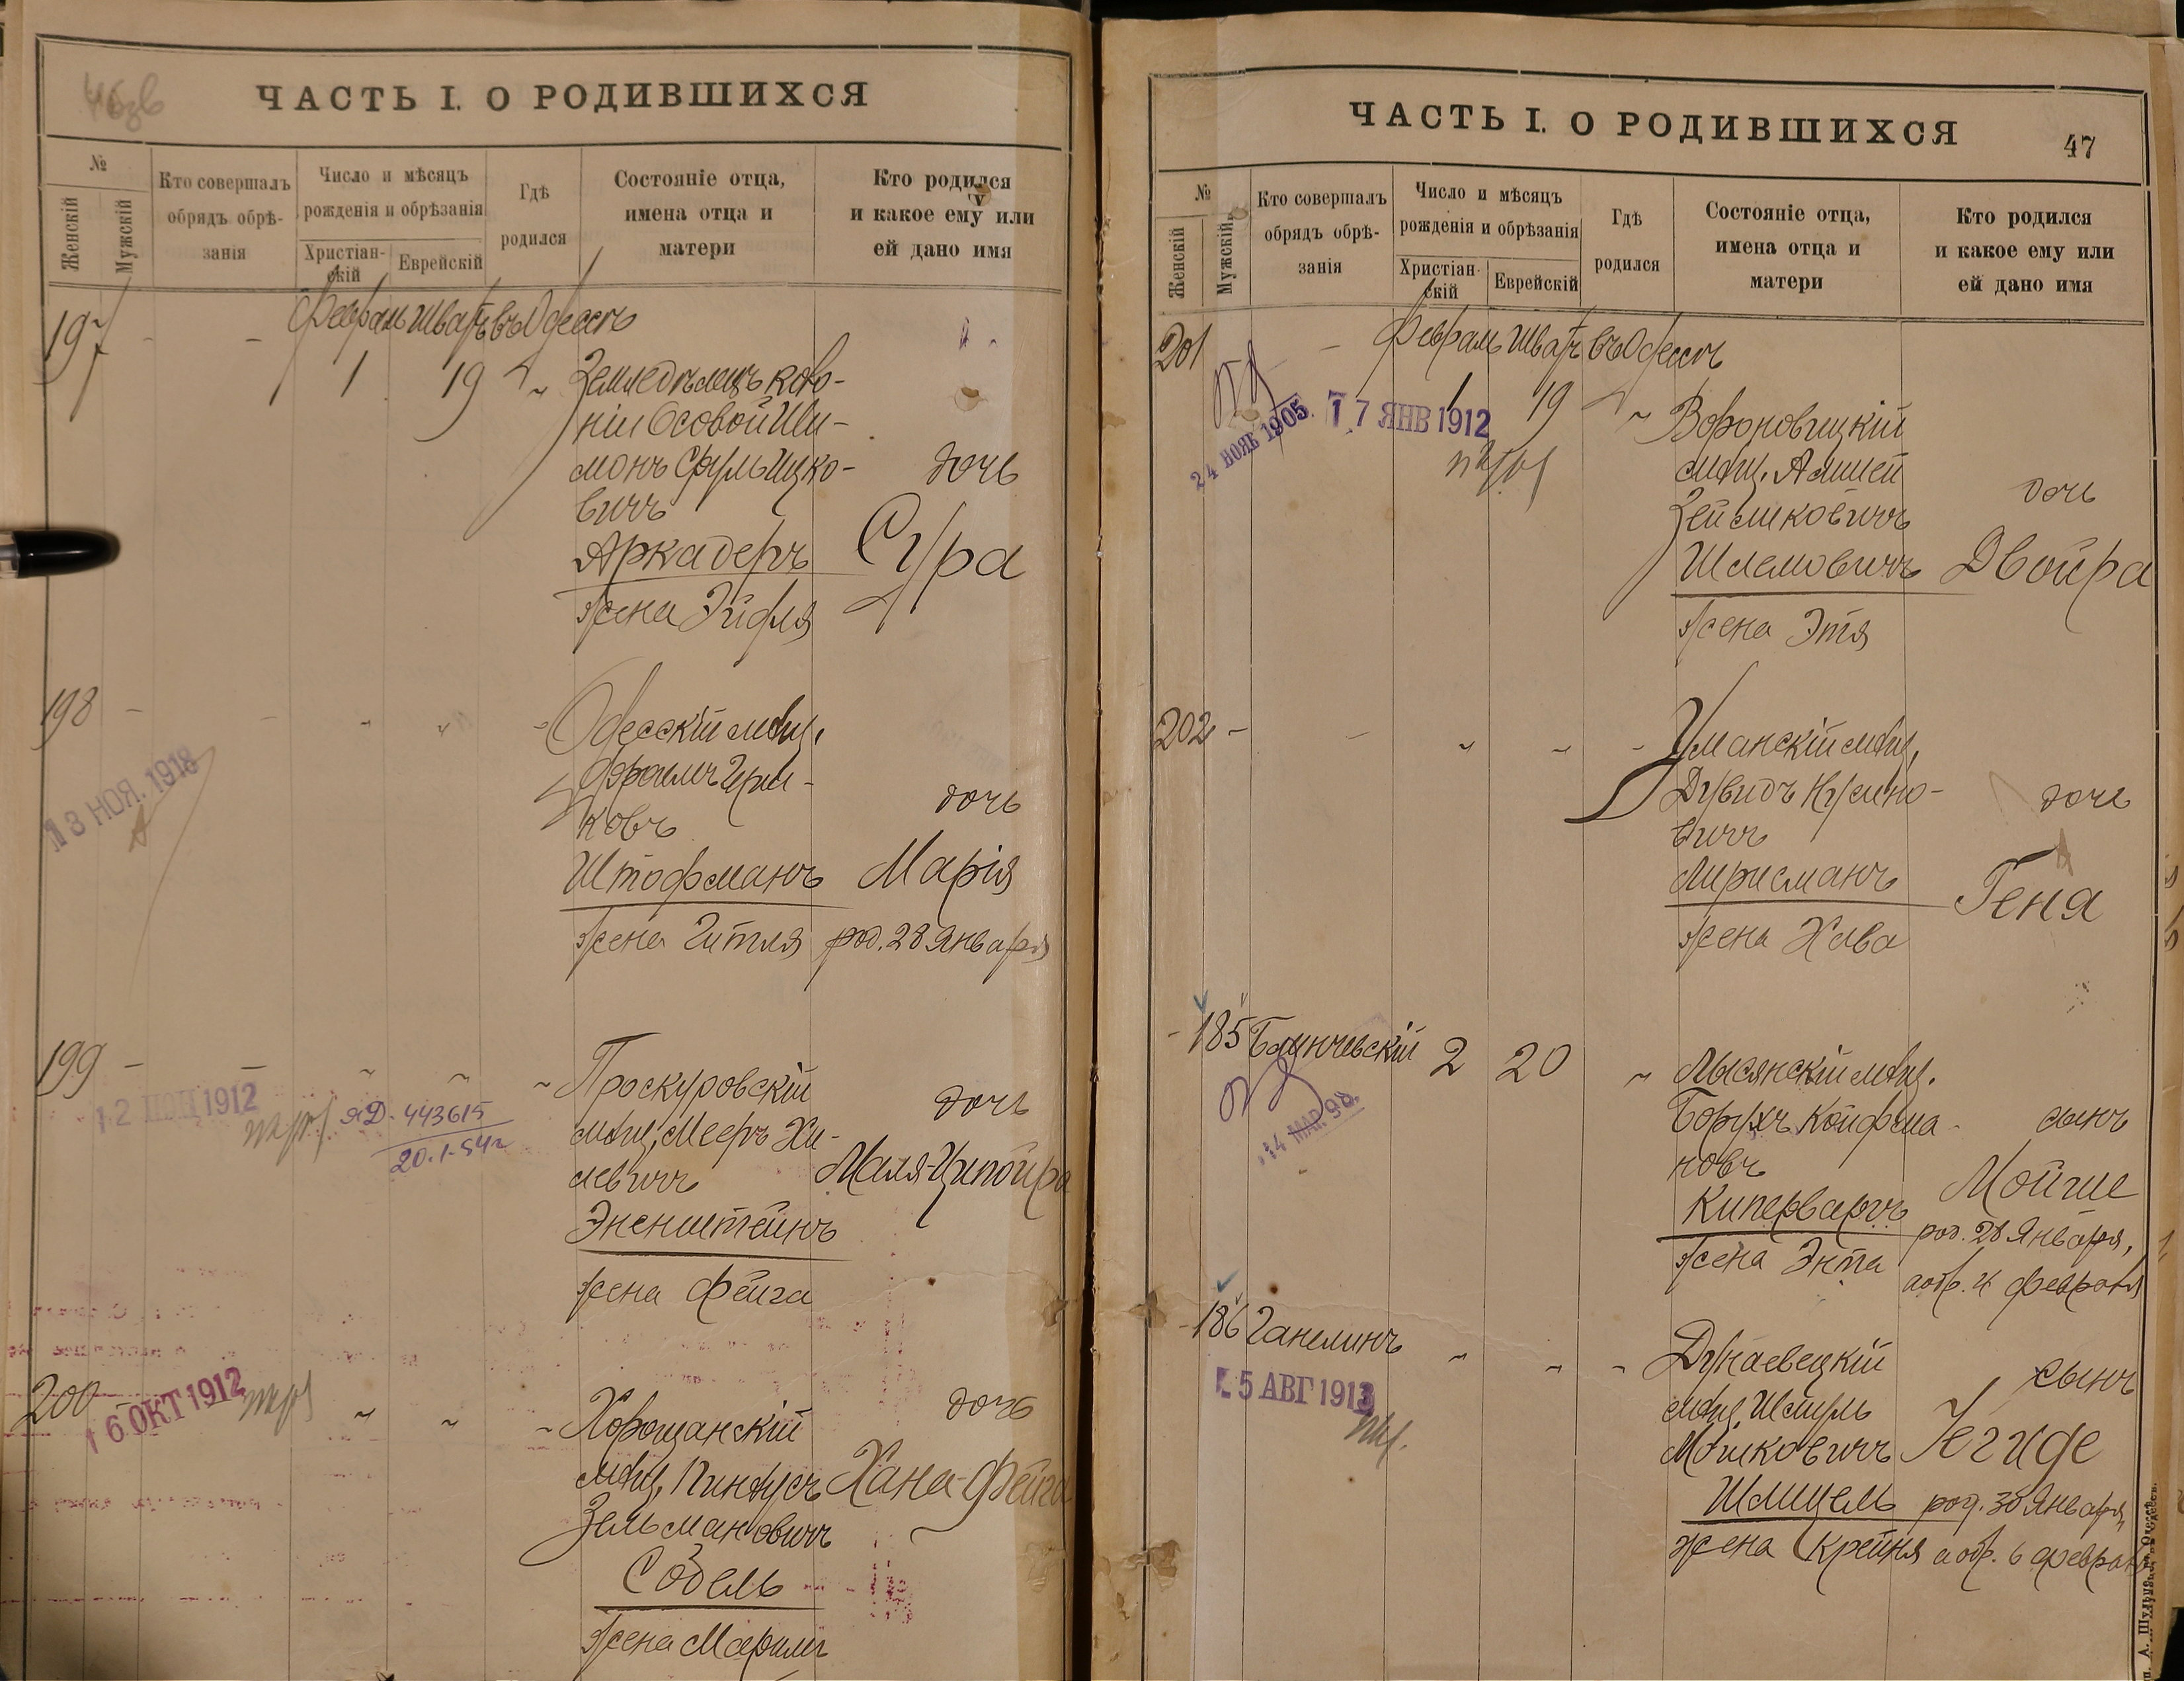 ЧАСТЬ I. О РОДИВШИХСЯ
№
Женскій
Мужской
Кто совершалъ
обрядъ обрѣ-
занія
Число и мѣсяцъ
рожденія и обрѣзанія
Христіан-
скій
Еврейскій
Гдѣ
родился
Состояніе отца,
имена отца и
матери
Кто родился
и какое ему или
ей дано имя
197 - - Февраль Шватъ въ Одессѣ
1 19 Земледѣлецъ коло-
ніи Осовой Ши-
монъ Сруль Ицко-
вичъ
Аркадеръ
жена Эйдля
дочь
Сура
198 - -
Одесскій мѣщ.
Фроимъ
ковъ
Штофманъ
жена Гитля
дочь
Марія
род. 28 Января
13 НОЯ. 1918
199 - -
Проскуровскій
мѣщ. Мееръ Хи-
левичъ
Эненштейнъ
жена Фейга
дочь
Маля-Ципойра
12 1912
ЯД. 443615
20.1.54г
200 -
16 ОКТ 1912
Хорощанскій
мѣщ. Пинхусъ
Зельмановичъ
Собель
жена Маримъ
дочь
Хана-Фейга
ЧАСТЬ I. О РОДИВШИХСЯ
47
№
Женскій
Мужской
Кто совершалъ
обрядъ обрѣ-
занія
Число и мѣсяцъ
рожденія и обрѣзанія
Христіан-
скій
Еврейскій
Гдѣ
родился
Состояніе отца,
имена отца и
матери
Кто родился
и какое ему или
ей дано имя
201 - Февраль Шватъ въ Одессѣ
1 19
24 НОЯБ 1905
17 ЯНВ 1912
Вороновицкій
мѣщ.
Зейликовичъ
Шлемовичъ
жена Этя
дочь
Двойра
202 - -
Уманскій мѣщ.
Дувидъ Нусино-
вичъ
Лирисманъ
жена Хава
дочь
Геня
- 185 2 20
14 МАР 98.
Лысянскій мѣщ.
Борухъ Койфма-
новъ
Киперваргъ
жена Энта
сынъ
Мойше
род. 28 Января,
а обр. 4 Февраля
- 186 Ганелинъ
5 АВГ 1913
Дунаевецкій
мѣщ. Шмуль
Мошковичъ
Шлицель
жена Крейня
сынъ
Іегиде
род. 30 Января,
а обр. 6 Февраля